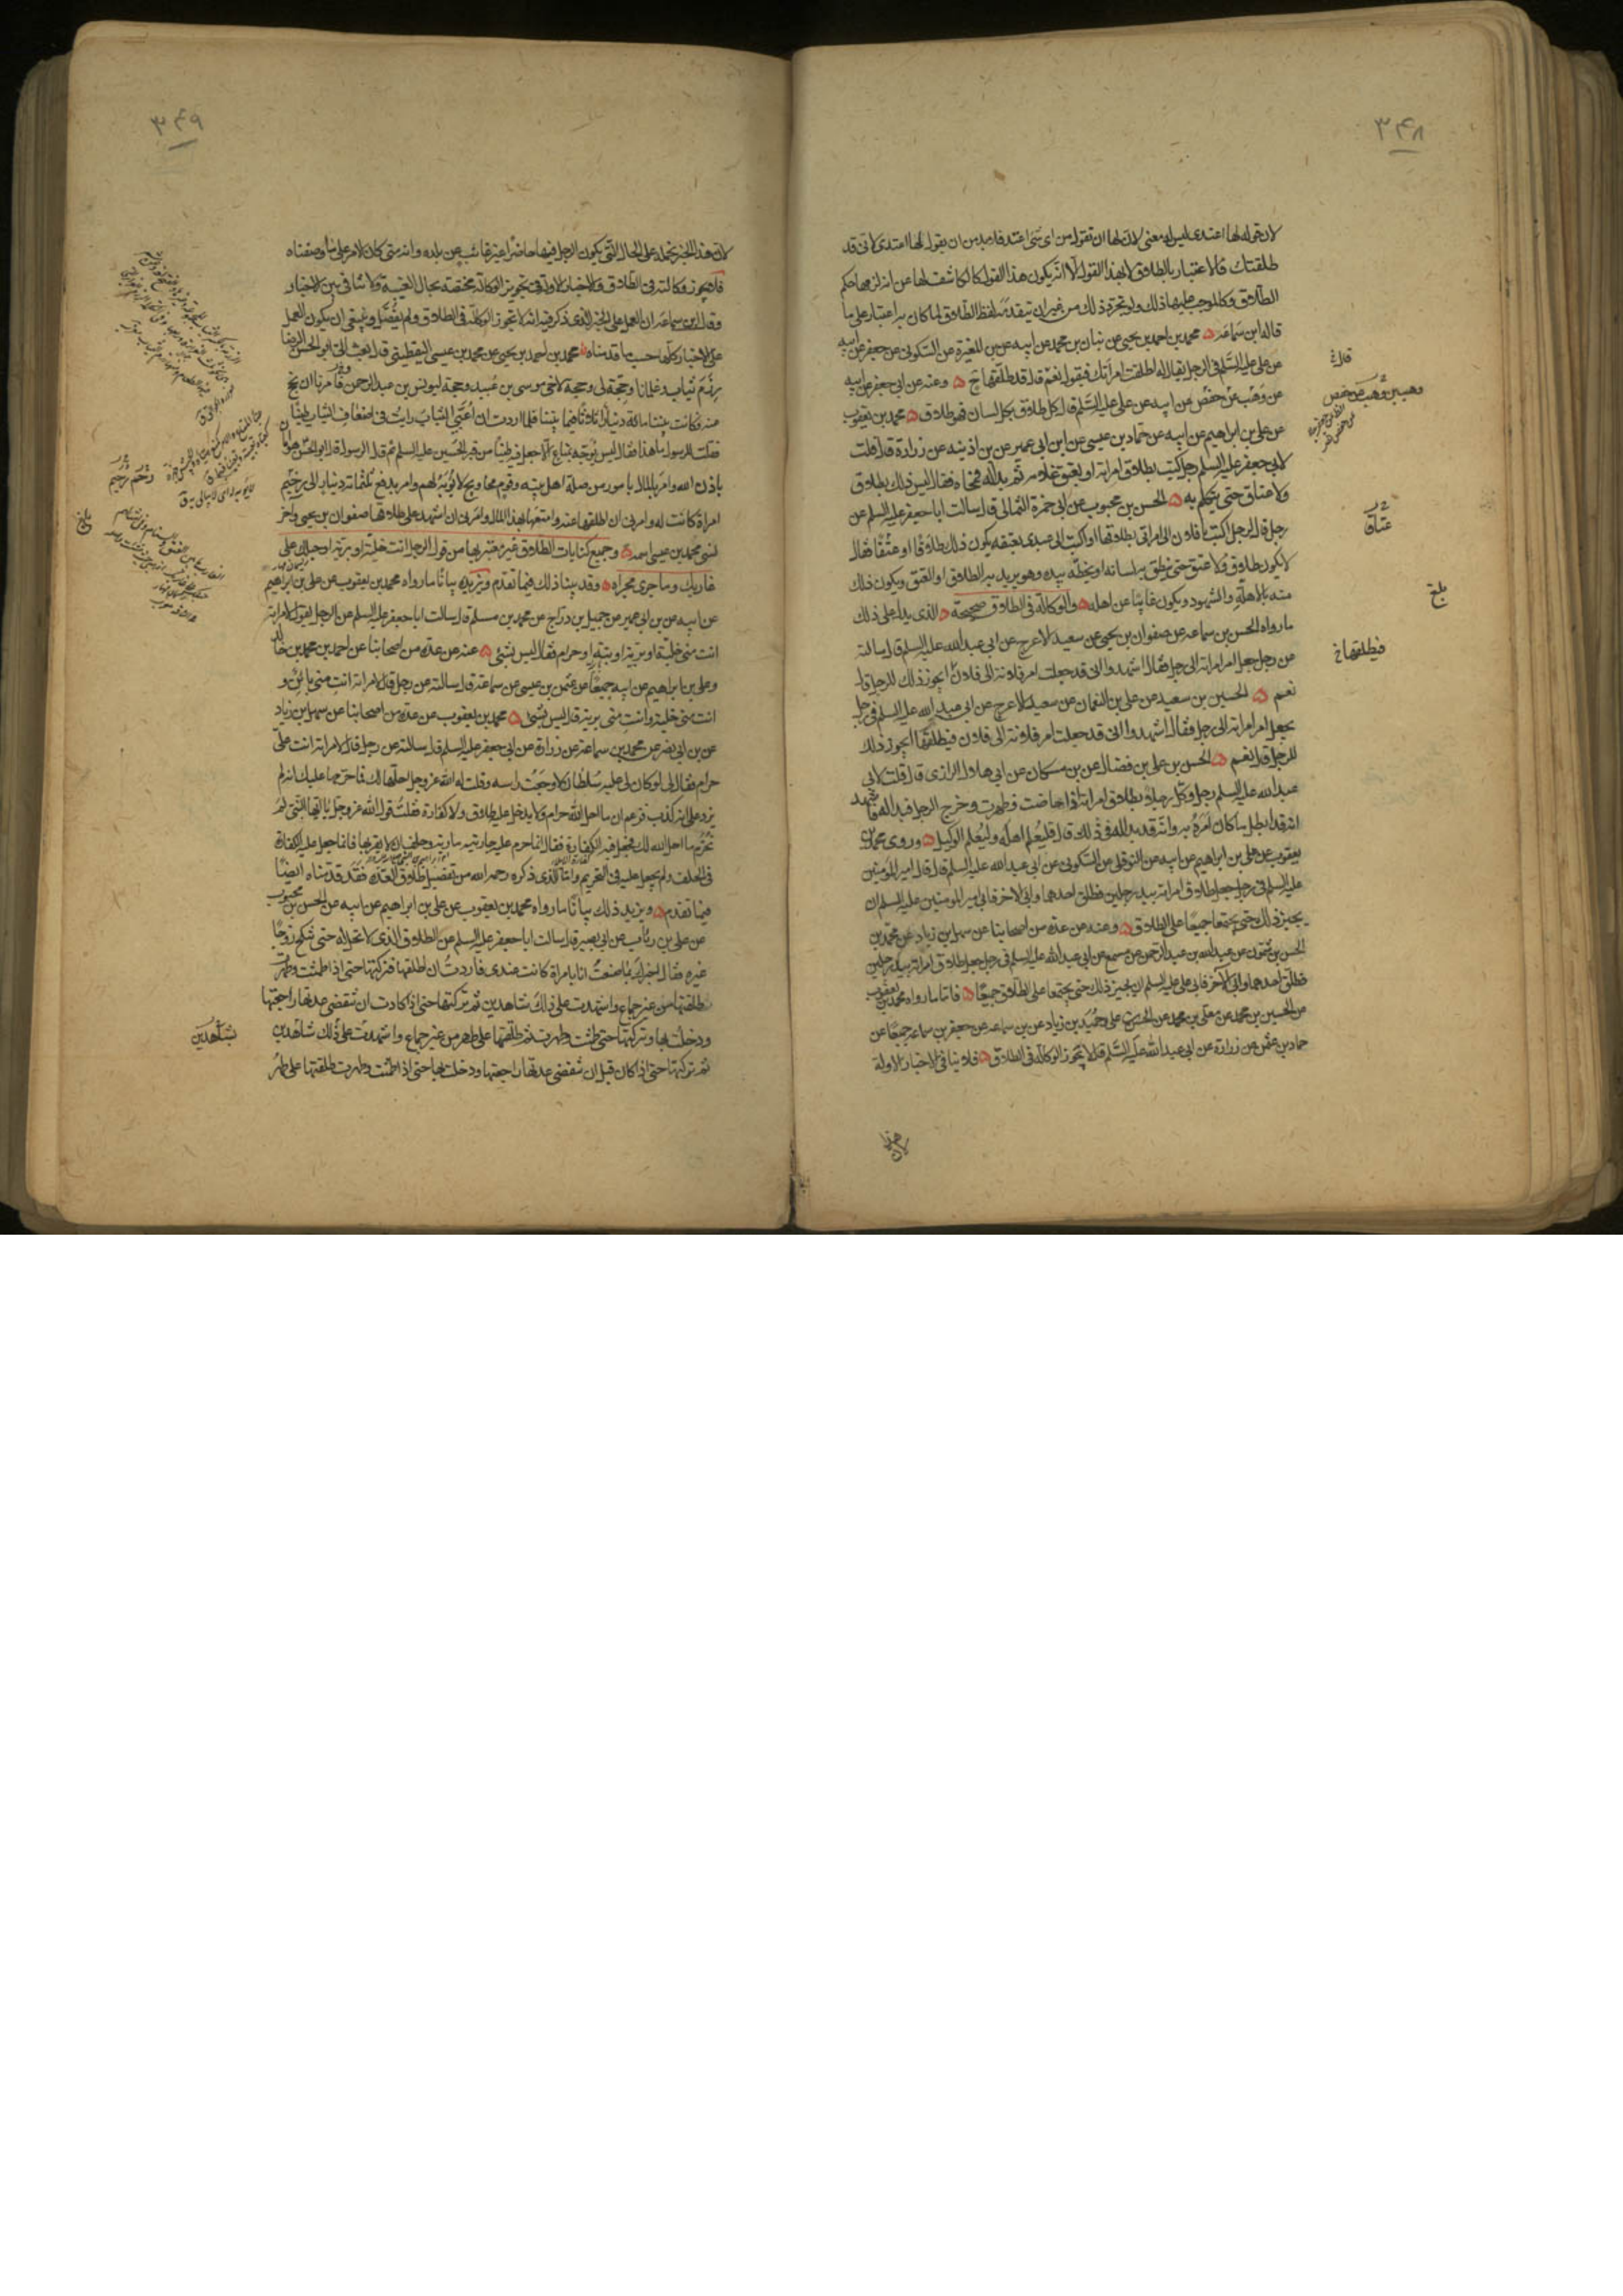 ۳۴۸
لان قوله لها اعتدى ليس له معنى لان لها ان تقول من اى شئ اعتد فلا بد من ان يقول لها اعتدى لانى قد
طلقتك فالاعتبار بالطلاق لا بهذا القول الا انه يكون هذا القول كالكاشف لها عن انه لزمها حكم
الطلاق وكالموجب عليها ذلك ولو تجرد ذلك من غير ان يتقدمه لفظ الطلاق لما كان به اعتبار على ما
قاله ابن سماعة محمد بن احمد بن يحيى عن بنان بن محمد عن ابيه عن بن المغيرة عن السكونى عن جعفر عن ابيه
عن على عليه السلم فى الرجل يقال له اطلقت امراتك فيقول نعم قال قد طلقها ح وعنه عن ابى جعفر عن ابيه
عن وهب عن حفص عن ابيه عن على عليه السلم قال كل طلاق بكل لسان فهو طلاق محمد بن يعقوب
عن على بن ابراهيم عن ابيه عن حماد بن عيسى عن ابن ابى عمير عن بن اذينه عن زرارة قال قلت
لابى جعفر عليه السلم رجل كتب بطلاق امراته او بعتق غلامه ثم بدا له فمحاه فقال ليس ذلك بطلاق
ولا عتاق حتى يتكلم به الحسن بن محبوب عن ابى حمزة الثمالى قال سالت ابا جعفر عليه السلم عن
رجل قال لرجل اكتب يا فلان الى امراتى بطلاقها او اكتب الى عبدى بعتقه يكون ذلك طلاقا او عتقا فقال
لا يكون طلاق ولا عتق حتى ينطق به لسانه او يخطه بيده وهو يريد به الطلاق او العتق ويكون ذلك
منه بالاهلة والشهود ويكون غائبا عن اهله والوكالة فى الطلاق صحيحة الذى يدل على ذلك
ما رواه الحسن بن سماعه عن صفوان بن يحيى عن سعيد الاعرج عن ابى عبد الله عليه السلم قال سالته
عن رجل جعل امر امراته الى رجل فقال اشهدوا انى قد جعلت امر فلانة الى فلان ايجوز ذلك للرجل قال
نعم الحسين بن سعيد عن على بن النعمان عن سعيد الاعرج عن ابى عبد الله عليه السلم فى رجل
يجعل امر امراته الى رجل فقال اشهدوا انى قد جعلت امر فلانة الى فلان فيطلقها ايجوز ذلك
للرجل قال نعم الحسن بن على بن فضال عن بن مسكان عن ابى هلال الرازى قال قلت لابى
عبد الله عليه السلم رجل وكل رجلا بطلاق امراته اذا حاضت وطهرت وخرج الرجل فبدا له فاشهد
انه قد ابطل ما كان امره به وانه قد بدا له فى ذلك قال فليعلم اهله وليعلم الوكيل وروى محمد بن
يعقوب عن على بن ابراهيم عن ابيه عن النوفلى عن السكونى عن ابى عبد الله عليه السلم قال قال امير المومنين
عليه السلم فى رجل جعل طلاق امراته بيد رجلين فطلق احدهما وابى الاخر فابى امير المومنين عليه السلم ان
يجيز ذلك حتى يجتمعا جميعا على الطلاق وعنه عن عدة من اصحابنا عن سهل بن زياد عن محمد بن
الحسن بن شمون عن عبد الله بن عبد الرحمن عن مسمع عن ابى عبد الله عليه السلم فى رجل جعل طلاق امراته بيد رجلين
فطلق احدهما وابى الاخر فابى على عليه السلم ان يجيز ذلك حتى يجتمعا على الطلاق جميعا فاما ما رواه محمد بن يعقوب
عن الحسين بن محمد عن معلى بن محمد عن الحسن بن على وحميد بن زياد عن بن سماعه عن جعفر بن سماعه جميعا عن
حماد بن عثمن عن زرارة عن ابى عبد الله عليه السلم قال لا تجوز الوكالة فى الطلاق فلا ينافى الاخبار الاولة
عتاق
بلغ
فيطلقها خ
لان هذا
۳۴۹
لان هذا الخبر نحمله على الحال التى يكون الرجل فيها حاضرا غير غائب عن بلده وانه متى كان الامر على ما وصفناه
فلا يجوز وكالته فى الطلاق والاخبار الاولة فى تجويز الوكالة مختصة بحال الغيبة ولا تنافى بين الاخبار
وقال ابن سماعه ان العمل على الخبر الذى ذكر فيه انه لا تجوز الوكالة فى الطلاق ولم يفصل وينبغى ان يكون العمل
على الاخبار كلها حسب ما قدمناه محمد بن احمد بن يحيى عن محمد بن عيسى اليقطينى قال بعث الى ابو الحسن الرضا
رزم ثياب وغلمانا وحجة لى وحجة لاخى موسى بن عبيد وحجة ليونس بن عبد الرحمن فامرنا ان نحج
عنه فكانت بيننا مائة دينار اثلاثا فيما بيننا فلما اردت ان اعبى الثياب رايت فى اضعاف الثياب طينا
فقلت للرسول ما هذا فقال ليس يوجه بمتاع الا جعل فيه طينا من قبر الحسين عليه السلم ثم قال الرسول قال ابو الحسن هو امان
باذن الله وامر بالمال بامور من صلة اهل بيته وقوم محاويج لا يؤبه لهم وامر بدفع ثلثمائة دينار الى رحيم
امراة كانت له وامرنى ان اطلقها عنه وامتعها بهذا المال وامرنى ان اشهد على طلاقها صفوان بن يحيى واخر
نسى محمد بن عيسى اسمه وجميع كنايات الطلاق غير معتبر بها من قول الرجل انت خلية او برية او حبلك على
غاربك وما جرى مجراه وقد بينا ذلك فيما تقدم ونزيده بيانا ما رواه محمد بن يعقوب عن على بن ابراهيم
عن ابيه عن بن ابى عمير عن جميل بن دراج عن محمد بن مسلم قال سالت ابا جعفر عليه السلم عن الرجل يقول لامراته
انت منى خلية او برية او بتة او حرام فقال ليس بشئ عنه عن عدة من اصحابنا عن احمد بن محمد بن خالد
وعلى بن ابراهيم عن ابيه جميعا عن عثمن بن عيسى عن سماعة قال سالته عن رجل قال لامراته انت منى بائن و
انت منى خلية وانت منى برية قال ليس بشئ محمد بن يعقوب عن عدة من اصحابنا عن سهل بن زياد
عن بن ابى نصر عن محمد بن سماعة عن زرارة عن ابى جعفر عليه السلم قال سالته عن رجل قال لامراته انت على
حرام فقال لى لو كان لى عليه سلطان لاوجعت راسه وقلت له الله عز وجل احلها لك فما حرمها عليك انه لم
يزد على ان كذب فزعم ان ما احل الله حرام ولا يدخل عليه طلاق ولا كفارة فقلت قول الله عز وجل يا ايها النبى لم
تحرم ما احل الله لك فجعل فيه الكفارة فقال انما حرم عليه جاريته مارية وحلف ان لا يقربها فانما جعل عليه الكفارة
فى الحلف ولم يجعل عليه فى التحريم واما الذى ذكره رحمه الله من تفصيل طلاق العدة فقد قدمناه ايضا
فيما تقدم ويزيد ذلك بيانا ما رواه محمد بن يعقوب عن على بن ابراهيم عن ابيه عن الحسن بن محبوب
عن على بن رئاب عن ابى بصير قال سالت ابا جعفر عليه السلم عن الطلاق الذى لا تحل له حتى تنكح زوجا
غيره فقال اخبرك بما صنعت انا بامراة كانت عندى فاردت ان اطلقها فتركتها حتى اذا طمثت وطهرت
طلقتها من غير جماع واشهدت على ذلك شاهدين ثم تركتها حتى اذا كادت ان تنقضى عدتها راجعتها
ودخلت بها وتركتها حتى طمثت وطهرت ثم طلقتها على طهر من غير جماع واشهدت على ذلك شاهدين
ثم تركتها حتى اذا كان قبل ان تنقضى عدتها راجعتها ودخلت بها حتى اذا طمثت وطهرت طلقتها على طهر
بشاهدين